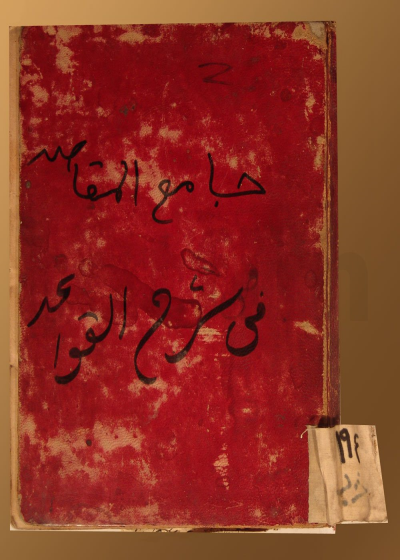 جامع المقاصد
فی شرح القواعد
۱۹۴